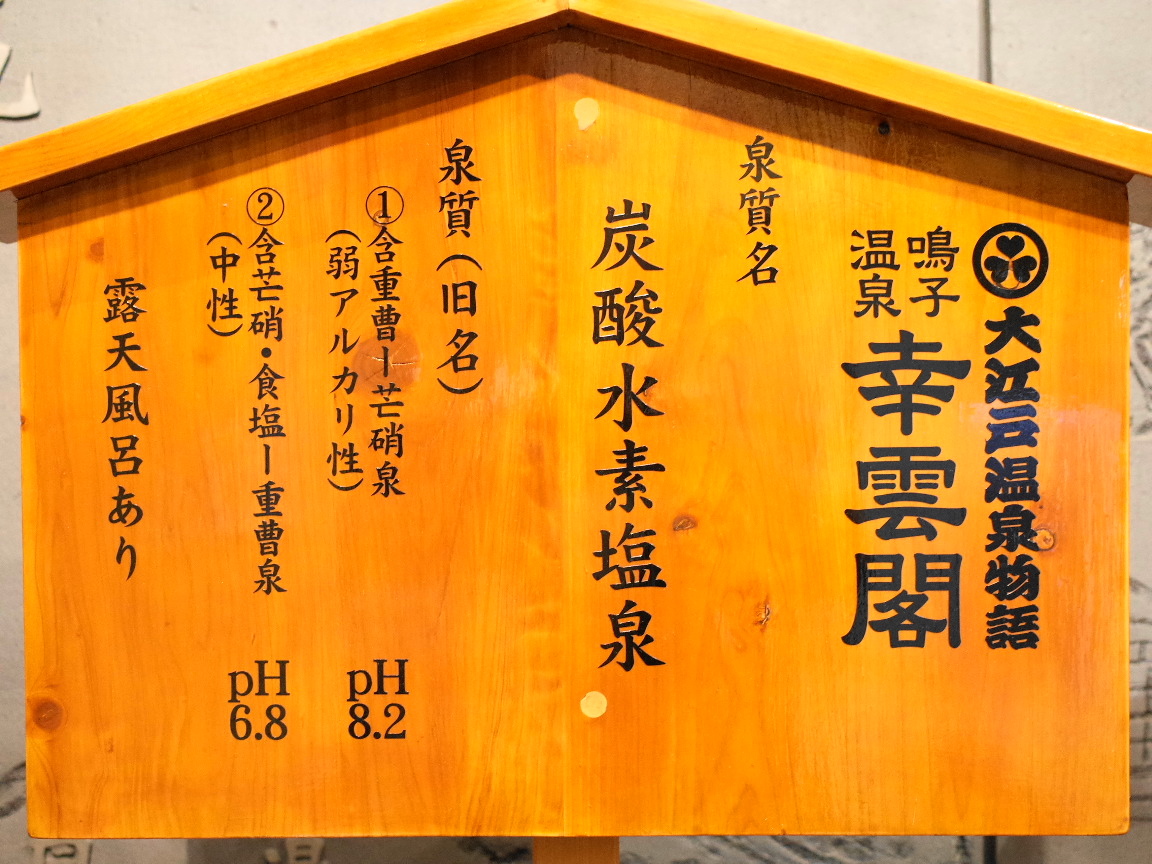 大江戸温泉物語
鳴子
温泉
幸雲閣
泉質名
炭酸水素塩泉
泉質（旧名）
①含重曹ー芒硝泉
（弱アルカリ性）
pH
8.2
②含芒硝・食塩ー重曹泉
（中性）
pH
6.8
露天風呂あり